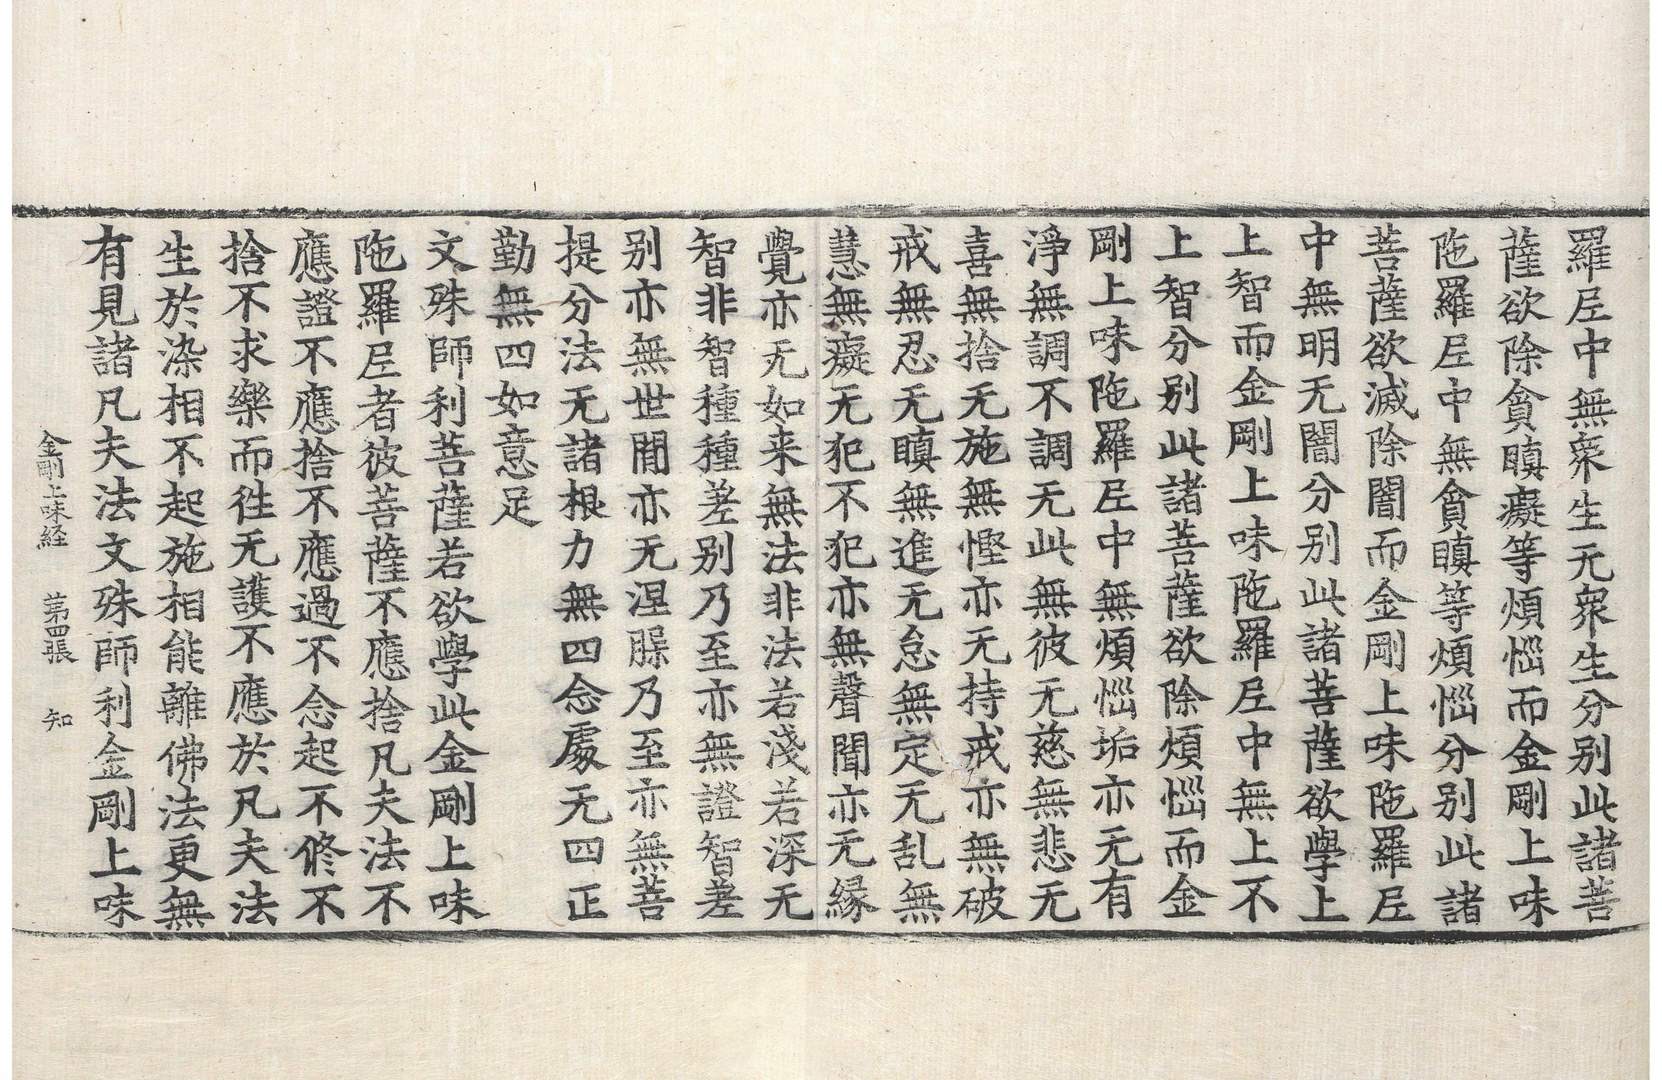 羅𡰱中無衆生无衆生分別此諸菩
薩欲除貪瞋癡等煩惱而金剛上味
陁羅𡰱中無貪瞋等煩惱分別此諸
菩薩欲滅除闇而金剛上味陁羅𡰱
中無明无闇分別此諸菩薩欲學上
上智而金剛上味陁羅𡰱中無上不
上智分別此諸菩薩欲除煩惱而金
剛上味陁羅𡰱中無煩惱垢亦无有
淨無調不調无此無彼无慈無悲无
喜無捨无施無慳亦无持戒亦無破
戒無忍无瞋無進无怠無定无乱無
慧無癡无犯不犯亦無聲聞亦无緣
覺亦无如来無法非法若淺若深无
智非智種種差别乃至亦無證智差
别亦無世間亦无涅槃乃至亦無菩
提分法无諸根力無四念處无四正
勤無四如意足
文殊師利菩薩若欲學此金剛上味
陁羅𡰱者彼菩薩不應捨凡夫法不
應證不應捨不應過不念起不脩不
捨不求樂而徃无護不應於凡夫法
生於染相不起施相能離佛法更無
有見諸凡夫法文殊師利金剛上味
金剛上味経　第四張　知